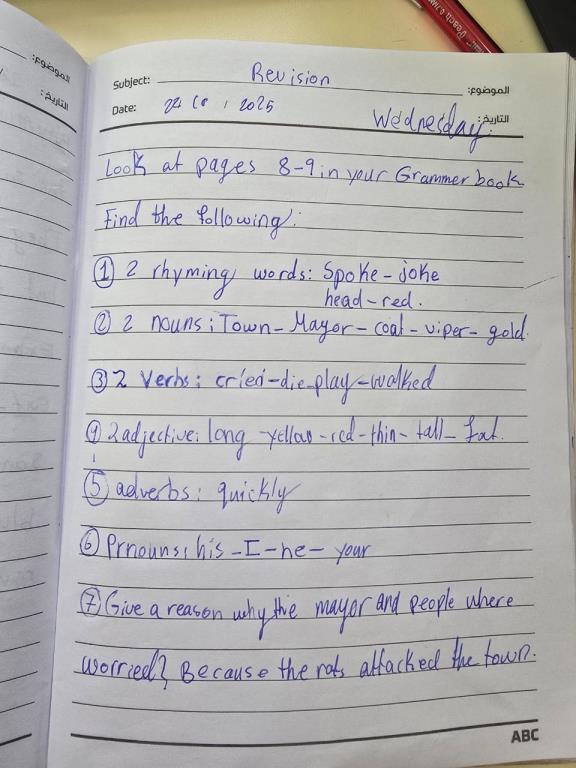 الموضوع:
التاريخ:
Subject: Revision الموضوع:
Date: 22 10 , 2025 Wednesday. التاريخ:
Look at pages 8-9 in your Grammer book
Find the following:
① 2 rhyming words: Spoke - joke
head - red.
② 2 nouns: Town - Mayor - coat - viper - gold.
③ 2 Verbs: cried - die - play - walked
④ 2 adjective: long - yellow - red - thin - tall - fat.
⑤ adverbs: quickly
⑥ Prnouns: his - I - he - your
⑦ Give a reason why the mayor and people where
worried? Because the rats attacked the town.
ABC